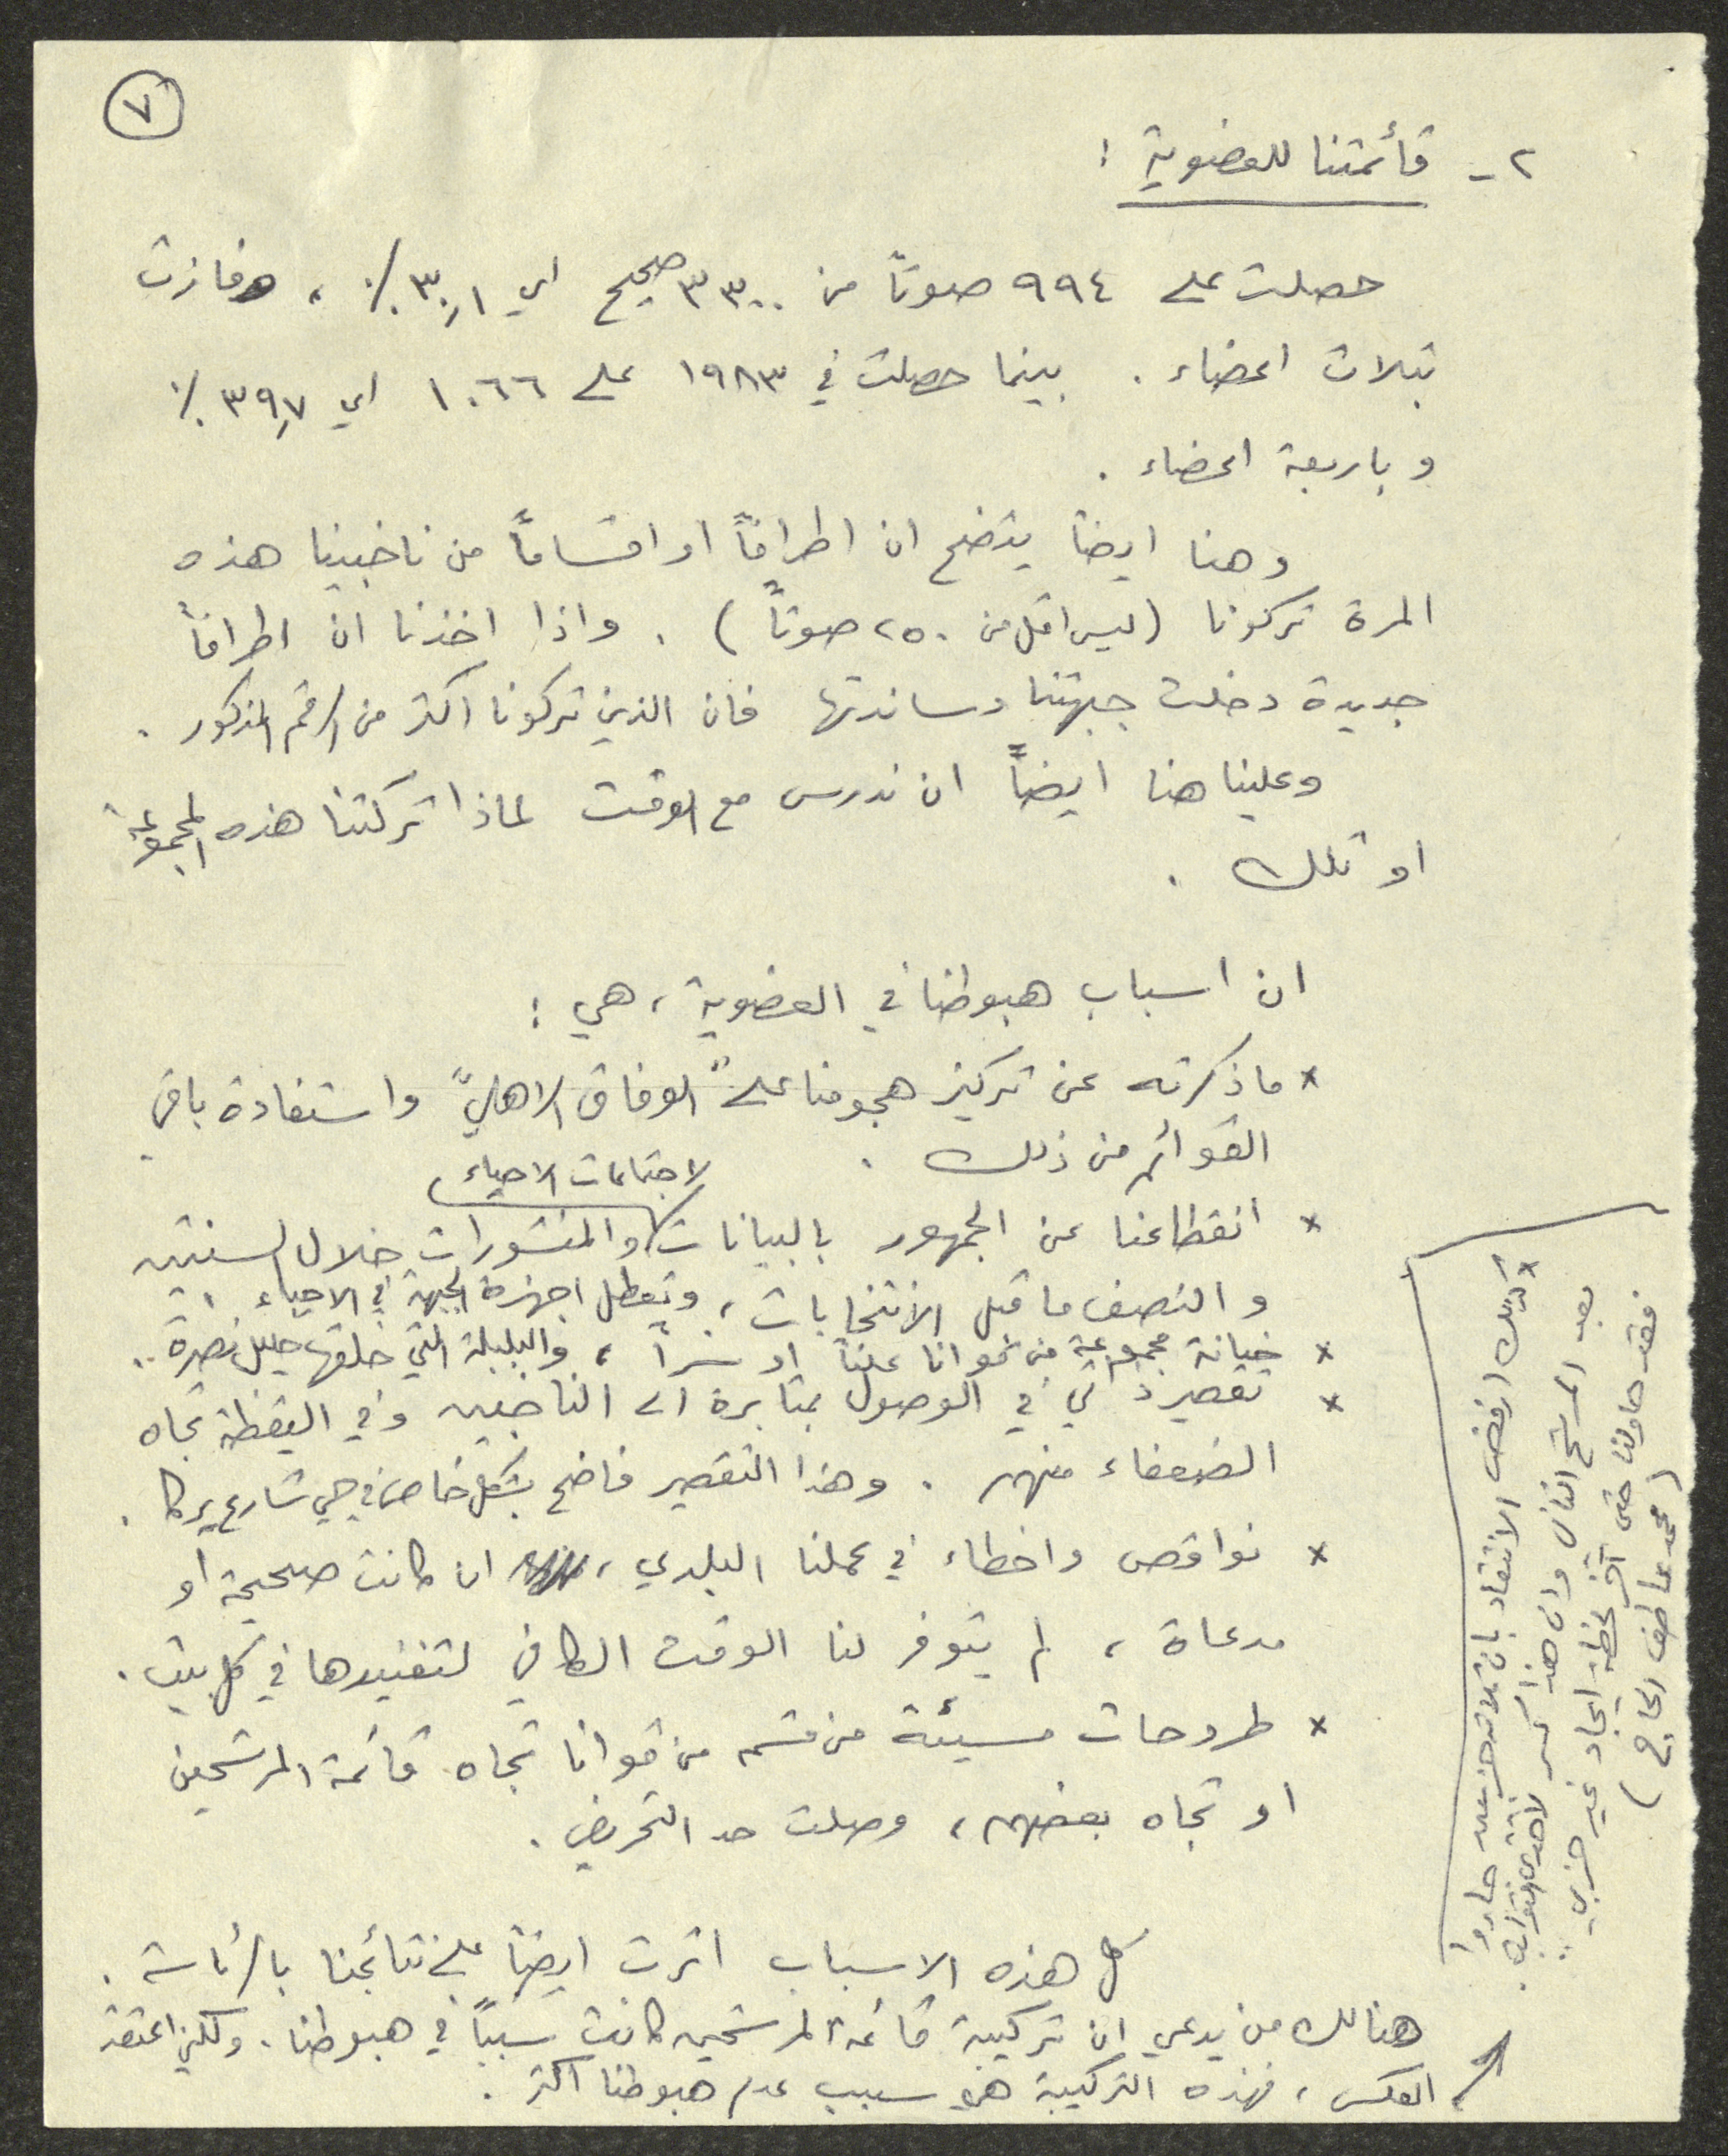 ٧
٢ - قائمتنا للعضوية :
حصلت على ٩٩٤ صوتاً من ٣٣٠٠ صحيح اي ٣٠,١ ٪ ، وفازت
بثلاث اعضاء . بينما حصلت في ١٩٨٣ على ١٠٦٦ اي ٣٩,٧ ٪
و باربعة اعضاء .
وهنا ايضاً يتضح ان اطرافاً او اقساماً من ناخبينا هذه
المرة تركونا ( ليس اقل من ٢٥٠ صوتاً ) . واذا اخذنا ان اطرافاً
جديدة دخلت جبهتنا وساندتها فان الذين تركونا اكثر من الرقم المذكور .
وعلينا هنا ايضاً ان ندرس مع الوقت لماذا تركتنا هذه المجموعة
او تلك .
ان اسباب هبوطنا في العضوية ، هي :
* ما ذكرته عن تركيز هجومنا على "الوفاق الاهلي" واستفادة باقي
القوائم من ذلك .
* انقطاعنا عن الجمهور بالبيانات والمنشورات خلال السنتين
لاجتماعات الاحياء
والنصف ما قبل الانتخابات ، وتعطل اجهزة الجبهة في الاحياء .
* خيانة مجموعة من قوانا علناً او سراً ، والبلبلة التي خلقها خليل نصرة ..
* تقصير ذاتي في الوصول بمثابرة الى الناخبين وفي اليقظة تجاه
الضعفاء منهم . وهذا التقصير فاضح بشكل خاص في حي شارع يركا .
* نواقص واخطاء في عملنا البلدي ، ان كانت صحيحة او
مدعاة ، لم يتوفر لنا الوقت الكافي لتفنيدها في كل بيت .
* طروحات مسيئة من قسم من قوانا تجاه قائمة المرشحين
او تجاه بعضهم ، وصلت حد التحريض .
كل هذه الاسباب اثرت ايضاً على نتائجنا بالرئاسة .
هنالك من يدعي ان تركيبة قائمة المرشحين كانت سبباً في هبوطنا . ولكني اعتقد
العكس ، فهذه التركيبة هي سبب عدم هبوطنا اكثر .
* كذلك ارفض الانتقاد بان ثلاثة حزبيين جاءوا
بعد المرشح الثاني وان هذا
فقد حاولنا حتى آخر لحظة ايجاد غير حزبي ..
( محمد عاطف الحاج )